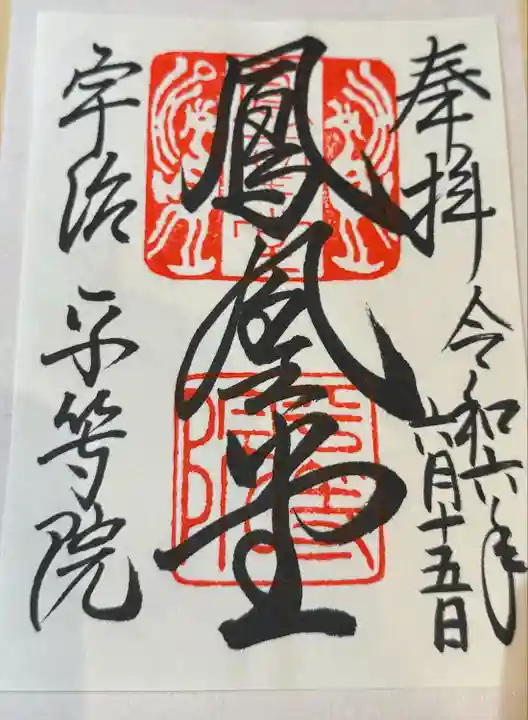 奉拝
令和六年
六月十五日
鳳凰堂
宇治 平等院